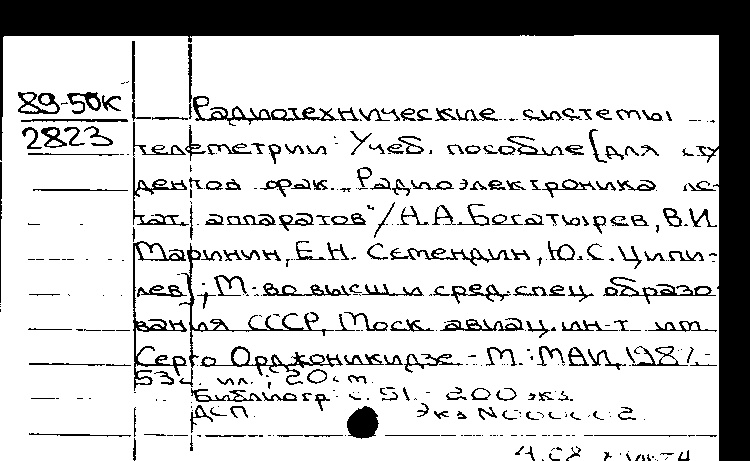 89-50к
2823
Радиотехнические системы
телеметрии: Учеб. пособие [для сту
дентов фак. "Радиоэлектроника ле
тат. аппаратов"/ А.А. Богатырев, В.И.
Маринин, Е.Н. Семендин, Ю.С. Ципи-
лев]; М-во высш и сред. спец образо
вания СССР, Моск. авиац. ин-т им.
Серго Орджоникидзе. - М.: МАИ, 1987.-
53с. ил.; 20см.
Библиогр: с. 51. - 200 экз.
ДСП. Экз N